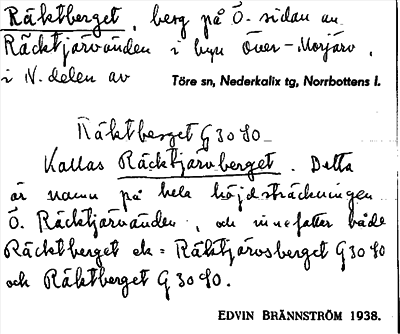 Räktberget, berg på Ö. sidan av
Räcktjärvänden i byn Över-Morjärv,
i N. delen av Töre sn, Nederkalix tg, Norrbottens l.
Räktberget G 30 40
Kallas Räcktjärvberget. Detta
är namn på hela höjdsträckningen
Ö. Räcktjärvänden, och innefattar både
Räcktberget ek = Räktjärvsberget G 30 40
och Räktberget G 30 40.
EDVIN BRÄNNSTRÖM 1938.